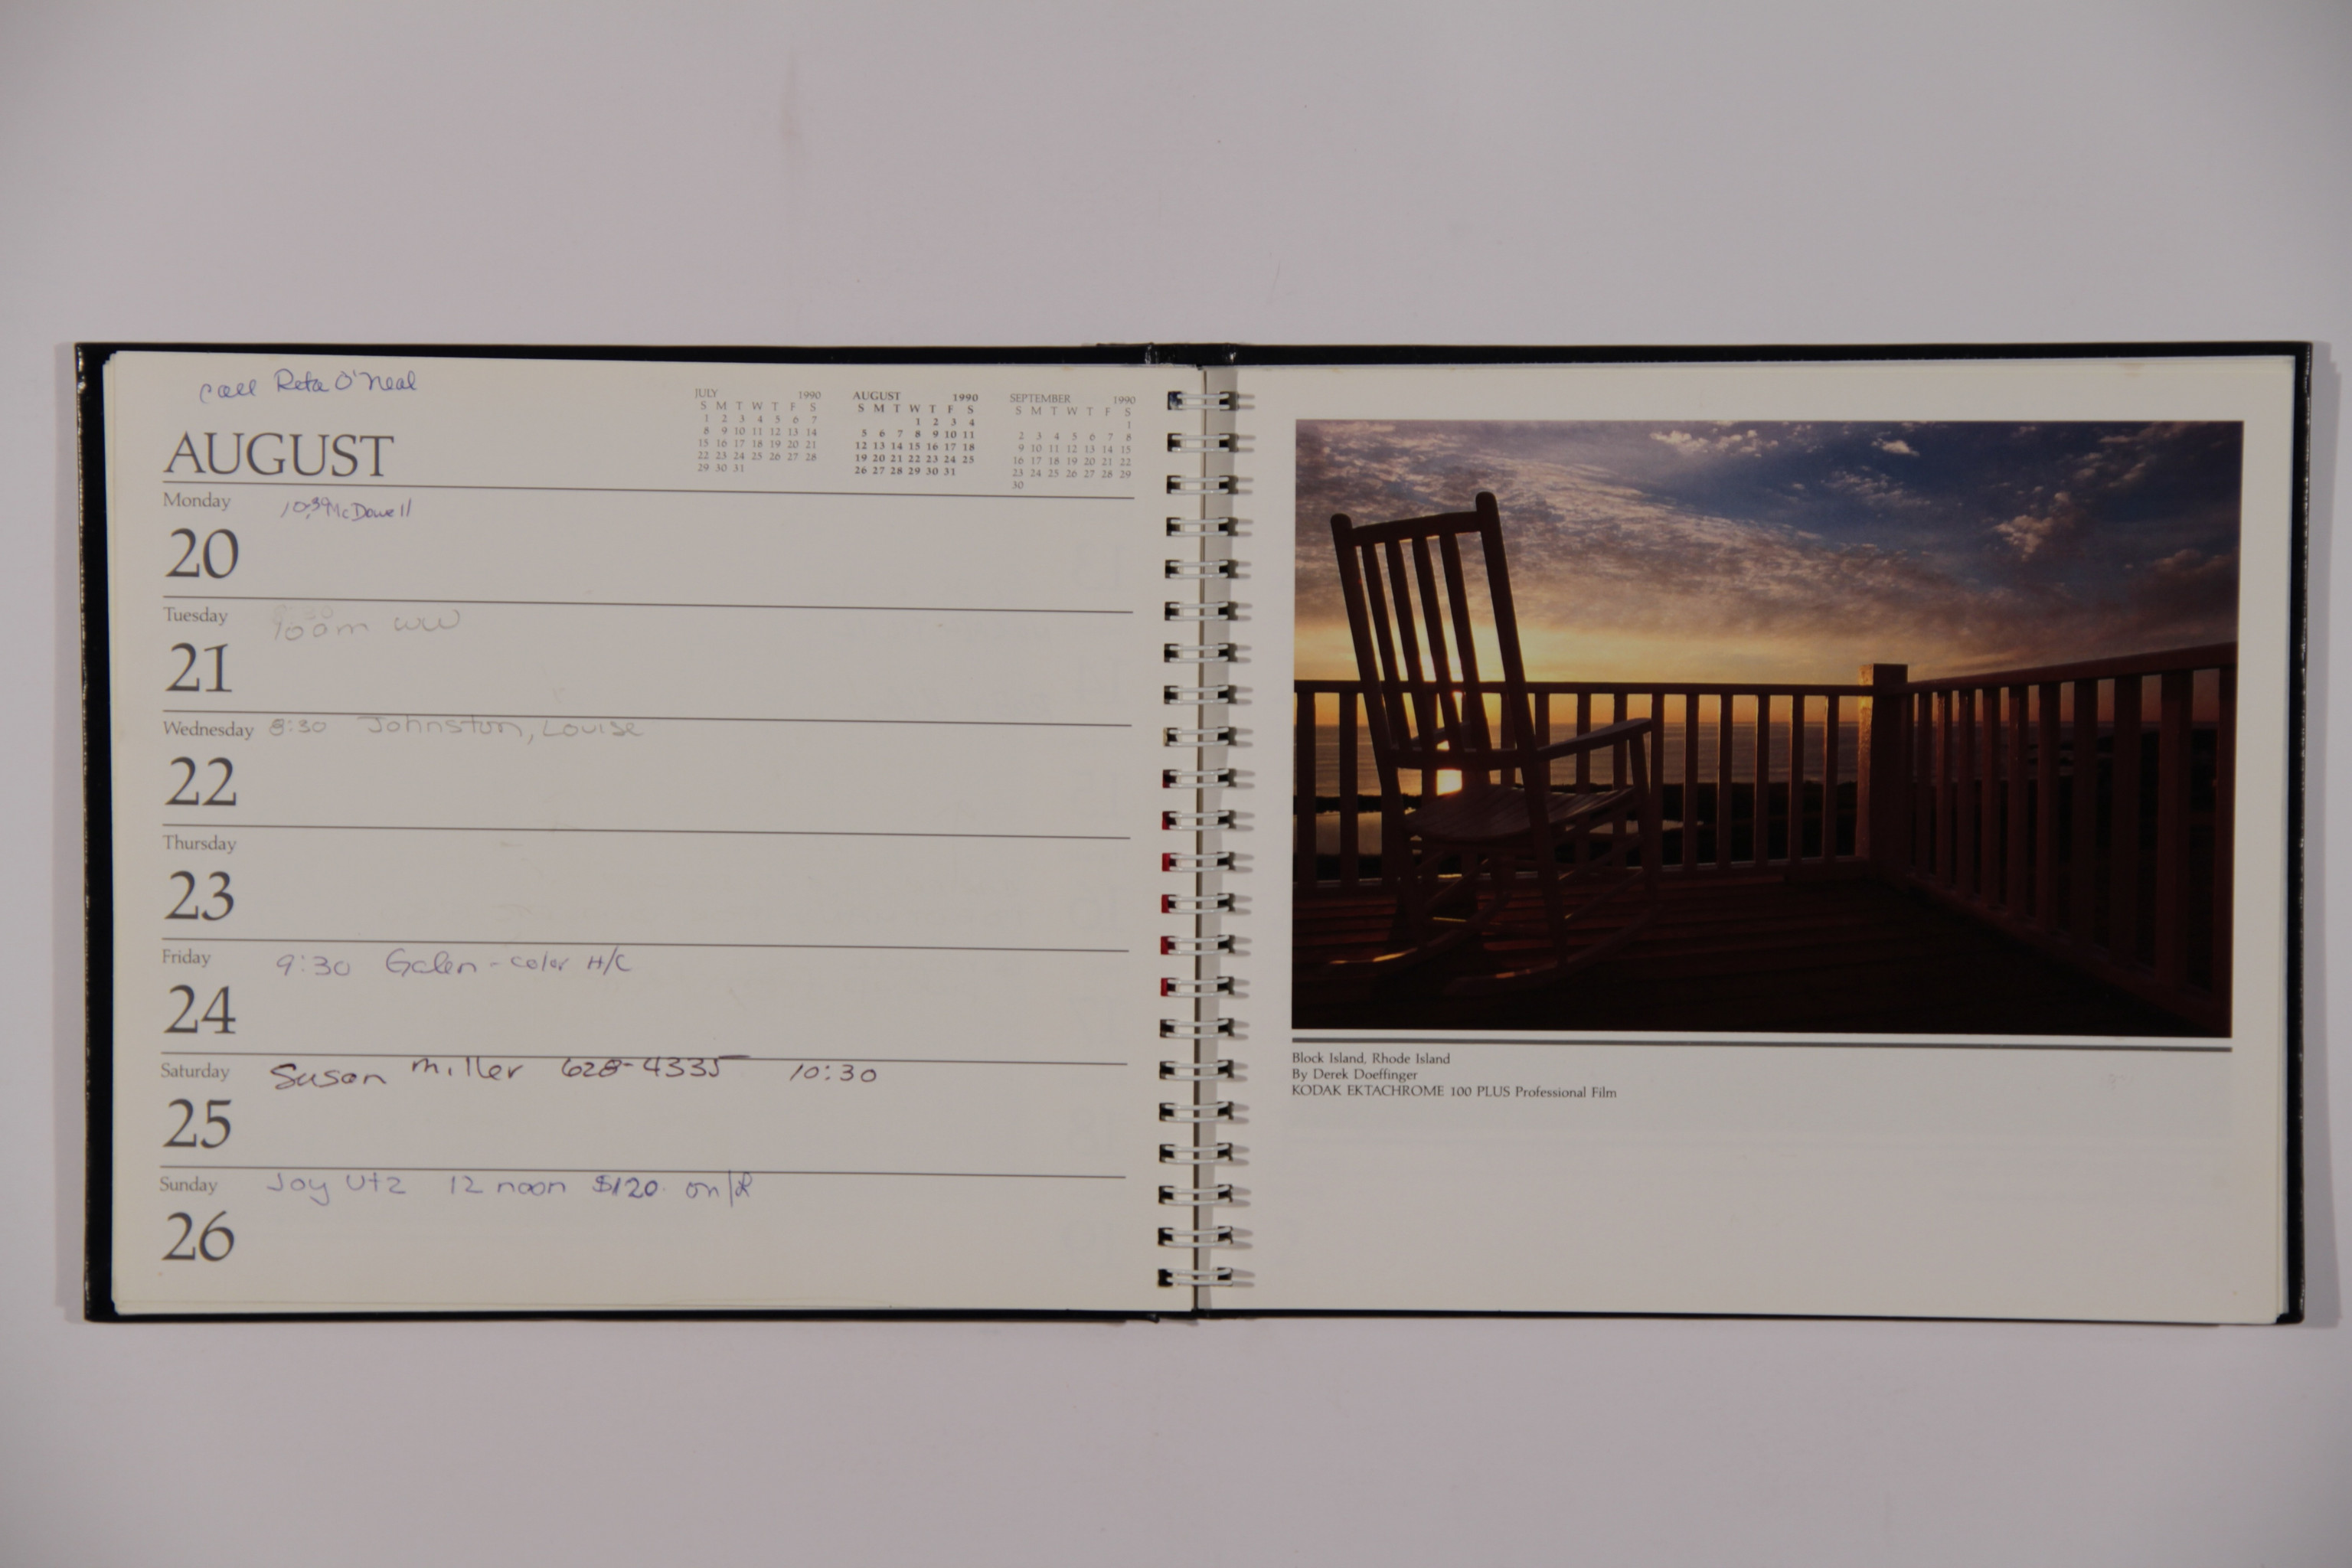 call Reta O'Neal
JULY 1990
S M T W T F S
1 2 3 4 5 6 7
8 9 10 11 12 13 14
15 16 17 18 19 20 21
22 23 24 25 26 27 28
29 30 31
AUGUST 1990
S M T W T F S
1 2 3 4
5 6 7 8 9 10 11
12 13 14 15 16 17 18
19 20 21 22 23 24 25
26 27 28 29 30 31
SEPTEMBER 1990
S M T W T F S
1
2 3 4 5 6 7 8
9 10 11 12 13 14 15
16 17 18 19 20 21 22
23 24 25 26 27 28 29
30
AUGUST
Monday McDowell
20
Tuesday WW
21
Wednesday 8:30 Johnston, Louise
22
Thursday
23
Friday 9:30 Galen - color H/C
24
Saturday Susan Miller 628-4335 10:30
25
Sunday Joy Utz 12 noon $120.
26
Block Island, Rhode Island
By Derek Doeffinger
KODAK EKTACHROME 100 PLUS Professional Film